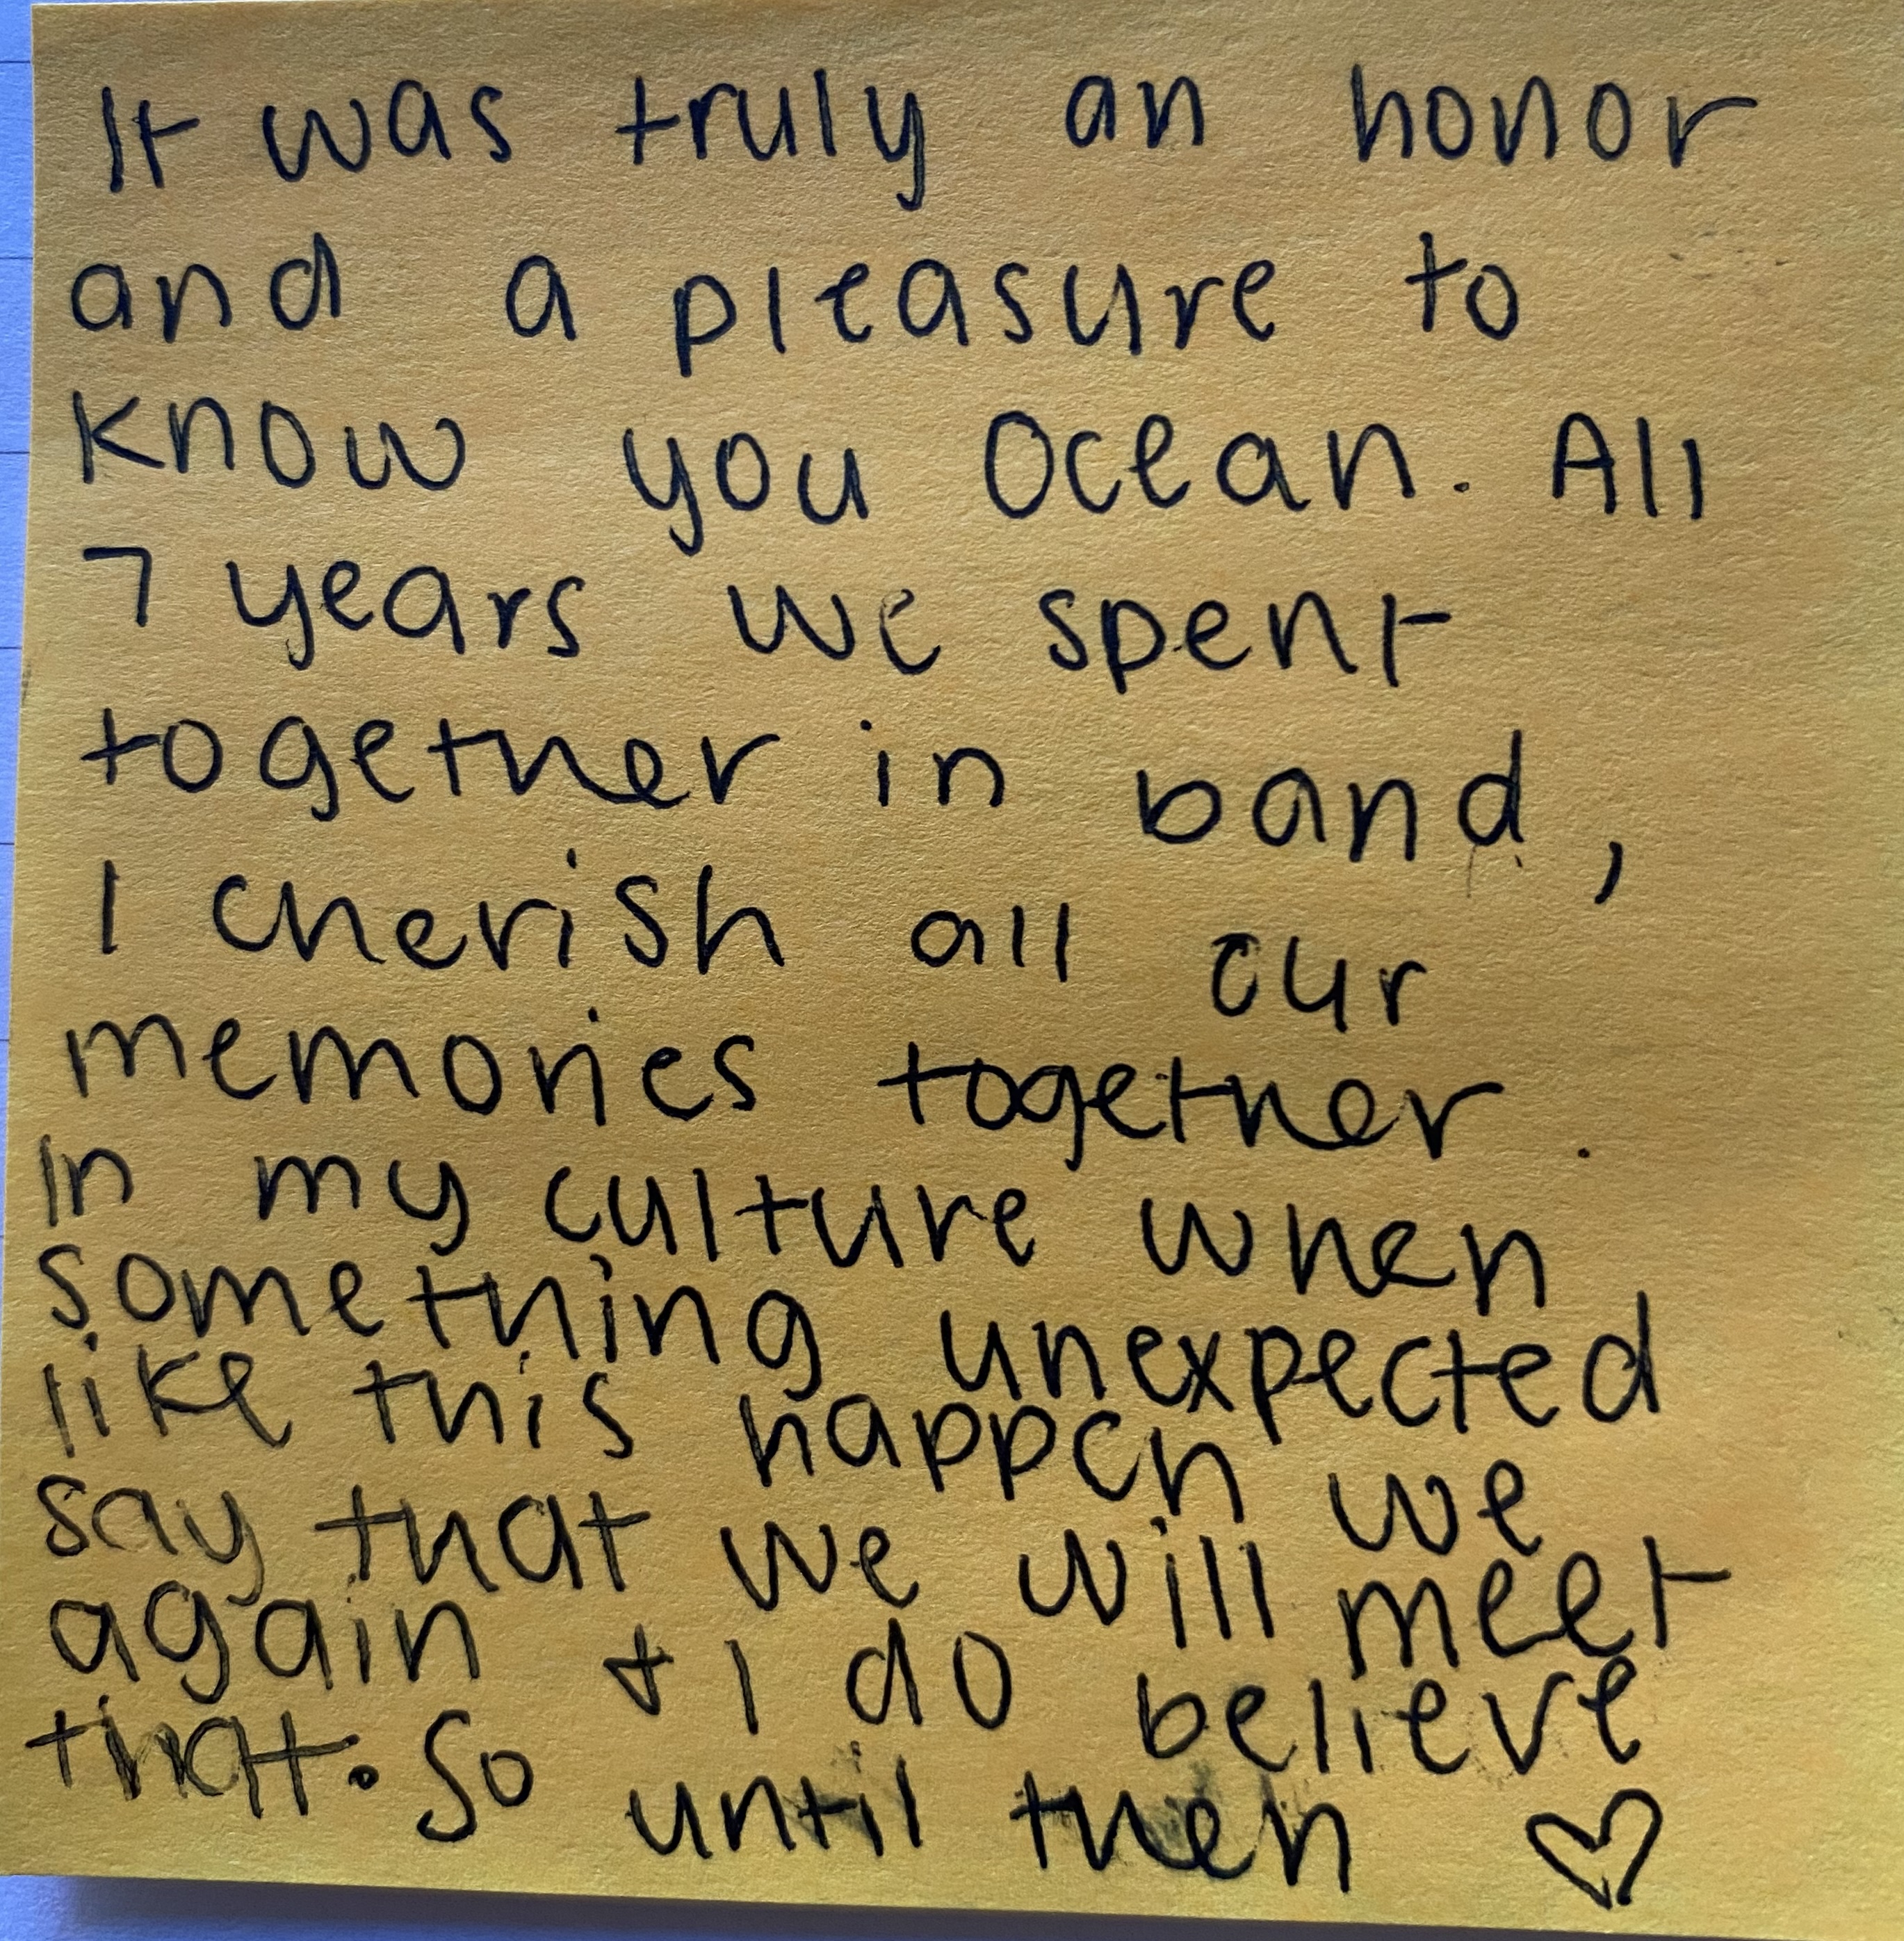 It was truly an honor
and a pleasure to
know you Ocean. All
7 years we spent
together in band,
I cherish all our
memories together.
In my culture when
something unexpected
like this happen we
say that we will meet
again + I do believe
that. So until then ♡